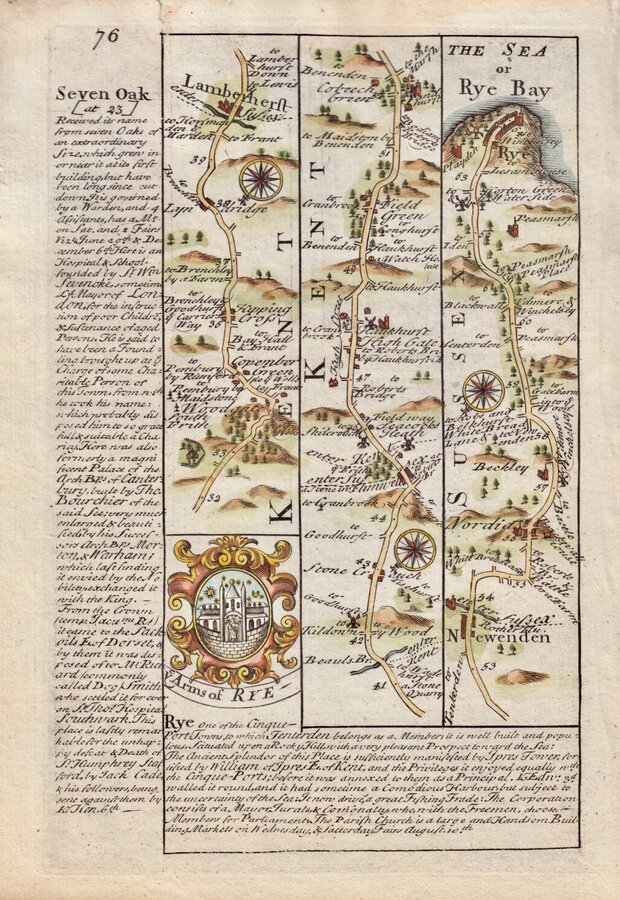 76
Seven Oak
[at 23]
Received its name
from seven Oaks of
an extraordinary
Size, which grew in
or near it at its first
building, but have
been long since cut
down. It is governed
by a Warden, and 4
Assistants, has a M.
on Sat. and 2 Fairs
Viz. June 29th & De
cember 6th. Here is an
Hospital & School
founded by Sr. Wm.
Sevenoke, sometime
Ld. Mayor of Lon-
don, for the instruc
tion of poor Childrē,
& sustenance of aged
Persons. He is said to
have been a Found
ling brought up at ye
Charge of some Cha-
ritable Person of
this Town from wch
he took his name:
which probably dis
posed him to so grate
full & suitable a Cha
rity. Here was also
formerly a magni
ficent Palace of the
Arch Bps. of Canter
bury, built by Tho.
Bourchier of the
said See; very much
enlarged & beauti-
fied by his Succes-
sors Arch Bps. Mor-
ton, & Warham;
which last finding
it envied by the No
bility, exchanged it
with the King.
From the Crown
(temp. Jac. 1mi. Rs.)
it came to the Sack
vils E. of Dorset, &
by them it was dis
posed of to Mr. Rich
ard (commonly
called Dog) Smith
who settled it for ever
on St. Thos. Hospital
Southwark. This
place is lastly remar
kable for the unhap
py defeat & Death of
Sr. Humphrey Staf
ford, by Jack Cade
& his followers, being
sent against them by
K. Hen. 6th
to
Lamber
hurst
Down
to Lewis
Lamberherst
enter
Sussex
to Horsmon
den &
Marden
to Frant
39
to
Brenchly
Lyn
38
dridge
37
to Brenchly
by a Farm
to
Brenchley &
Goodhurst
Kipping
Cross
by Carriers
Way
36
to
Bay Hall
& Frant
Copenber
Green
to
Pembury
by Remport
to
Pembury &
Maidston
Wood
Frith
33
32
KENT
ye Arms of RYE
to
Benenden
Cobeech
Green
to
the
Marsh
to Maidston by
Benenden
51
to
Cranbrook
Field
Green
to
Benenden
to
Conghurst
to
Haukhurst
49
Watch Ho
use
to
Haukhurst
to Cran
brook
48
Haukhurst
High Gate
to Roberts Bri
& Haukhurst
47
to
Roberts
Bridge
to
Fieldway
Seacocks
Heath
enter Ke
enter Su
45
Flimwell
to Cranbrook
44
to
Goodhurst
43
Stone Cr
ouch
to
Goodhurst
Kildown
ey Wood
Beauls Br.
enter
Kent
a Stone
Quarry
41
KENT
THE SEA
or
Rye Bay
to
Winchelsey
Rye
63
to
Corton Green
Water Side
to
Iden
Peasmarsh
to
Peasmarsh
place
to
Blackwall
to
Idmere &
Winchelsey
60
to
Tenterden
to
Peasmarsh
59
58
Beckley
57
56
Nordia
54
Sussex
Newenden
53
to
Tenterden
SUSSEX
Rye One of the Cinque-
Port Towns to which Tenterden belongs as a Member, it is well built and popu
lous, Situated upon a Rocky Hill, with a very pleasant Prospect toward the Sea:
The Ancient splendor of this Place is sufficiently manifested by Ipres Tower, for
tified by William of Ipres E. of Kent, and the Priviledges it enjoyed equally wth.
the Cinque-Ports; before it was annexed to them as a Principal. K. Edw. 3d
walled it round, and it had sometime a Comodious Harbour, but subject to
the uncertainty of the Sea. It now drives a great Fishing Trade. The Corporation
consists of a Mayor, Jurats, & Comonalty, who, with the Freemen, choose
Members for Parliament. The Parish Church is a large and Handsom Buil
ding. Markets on Wednesday, & Satterday Fairs August. 10.th